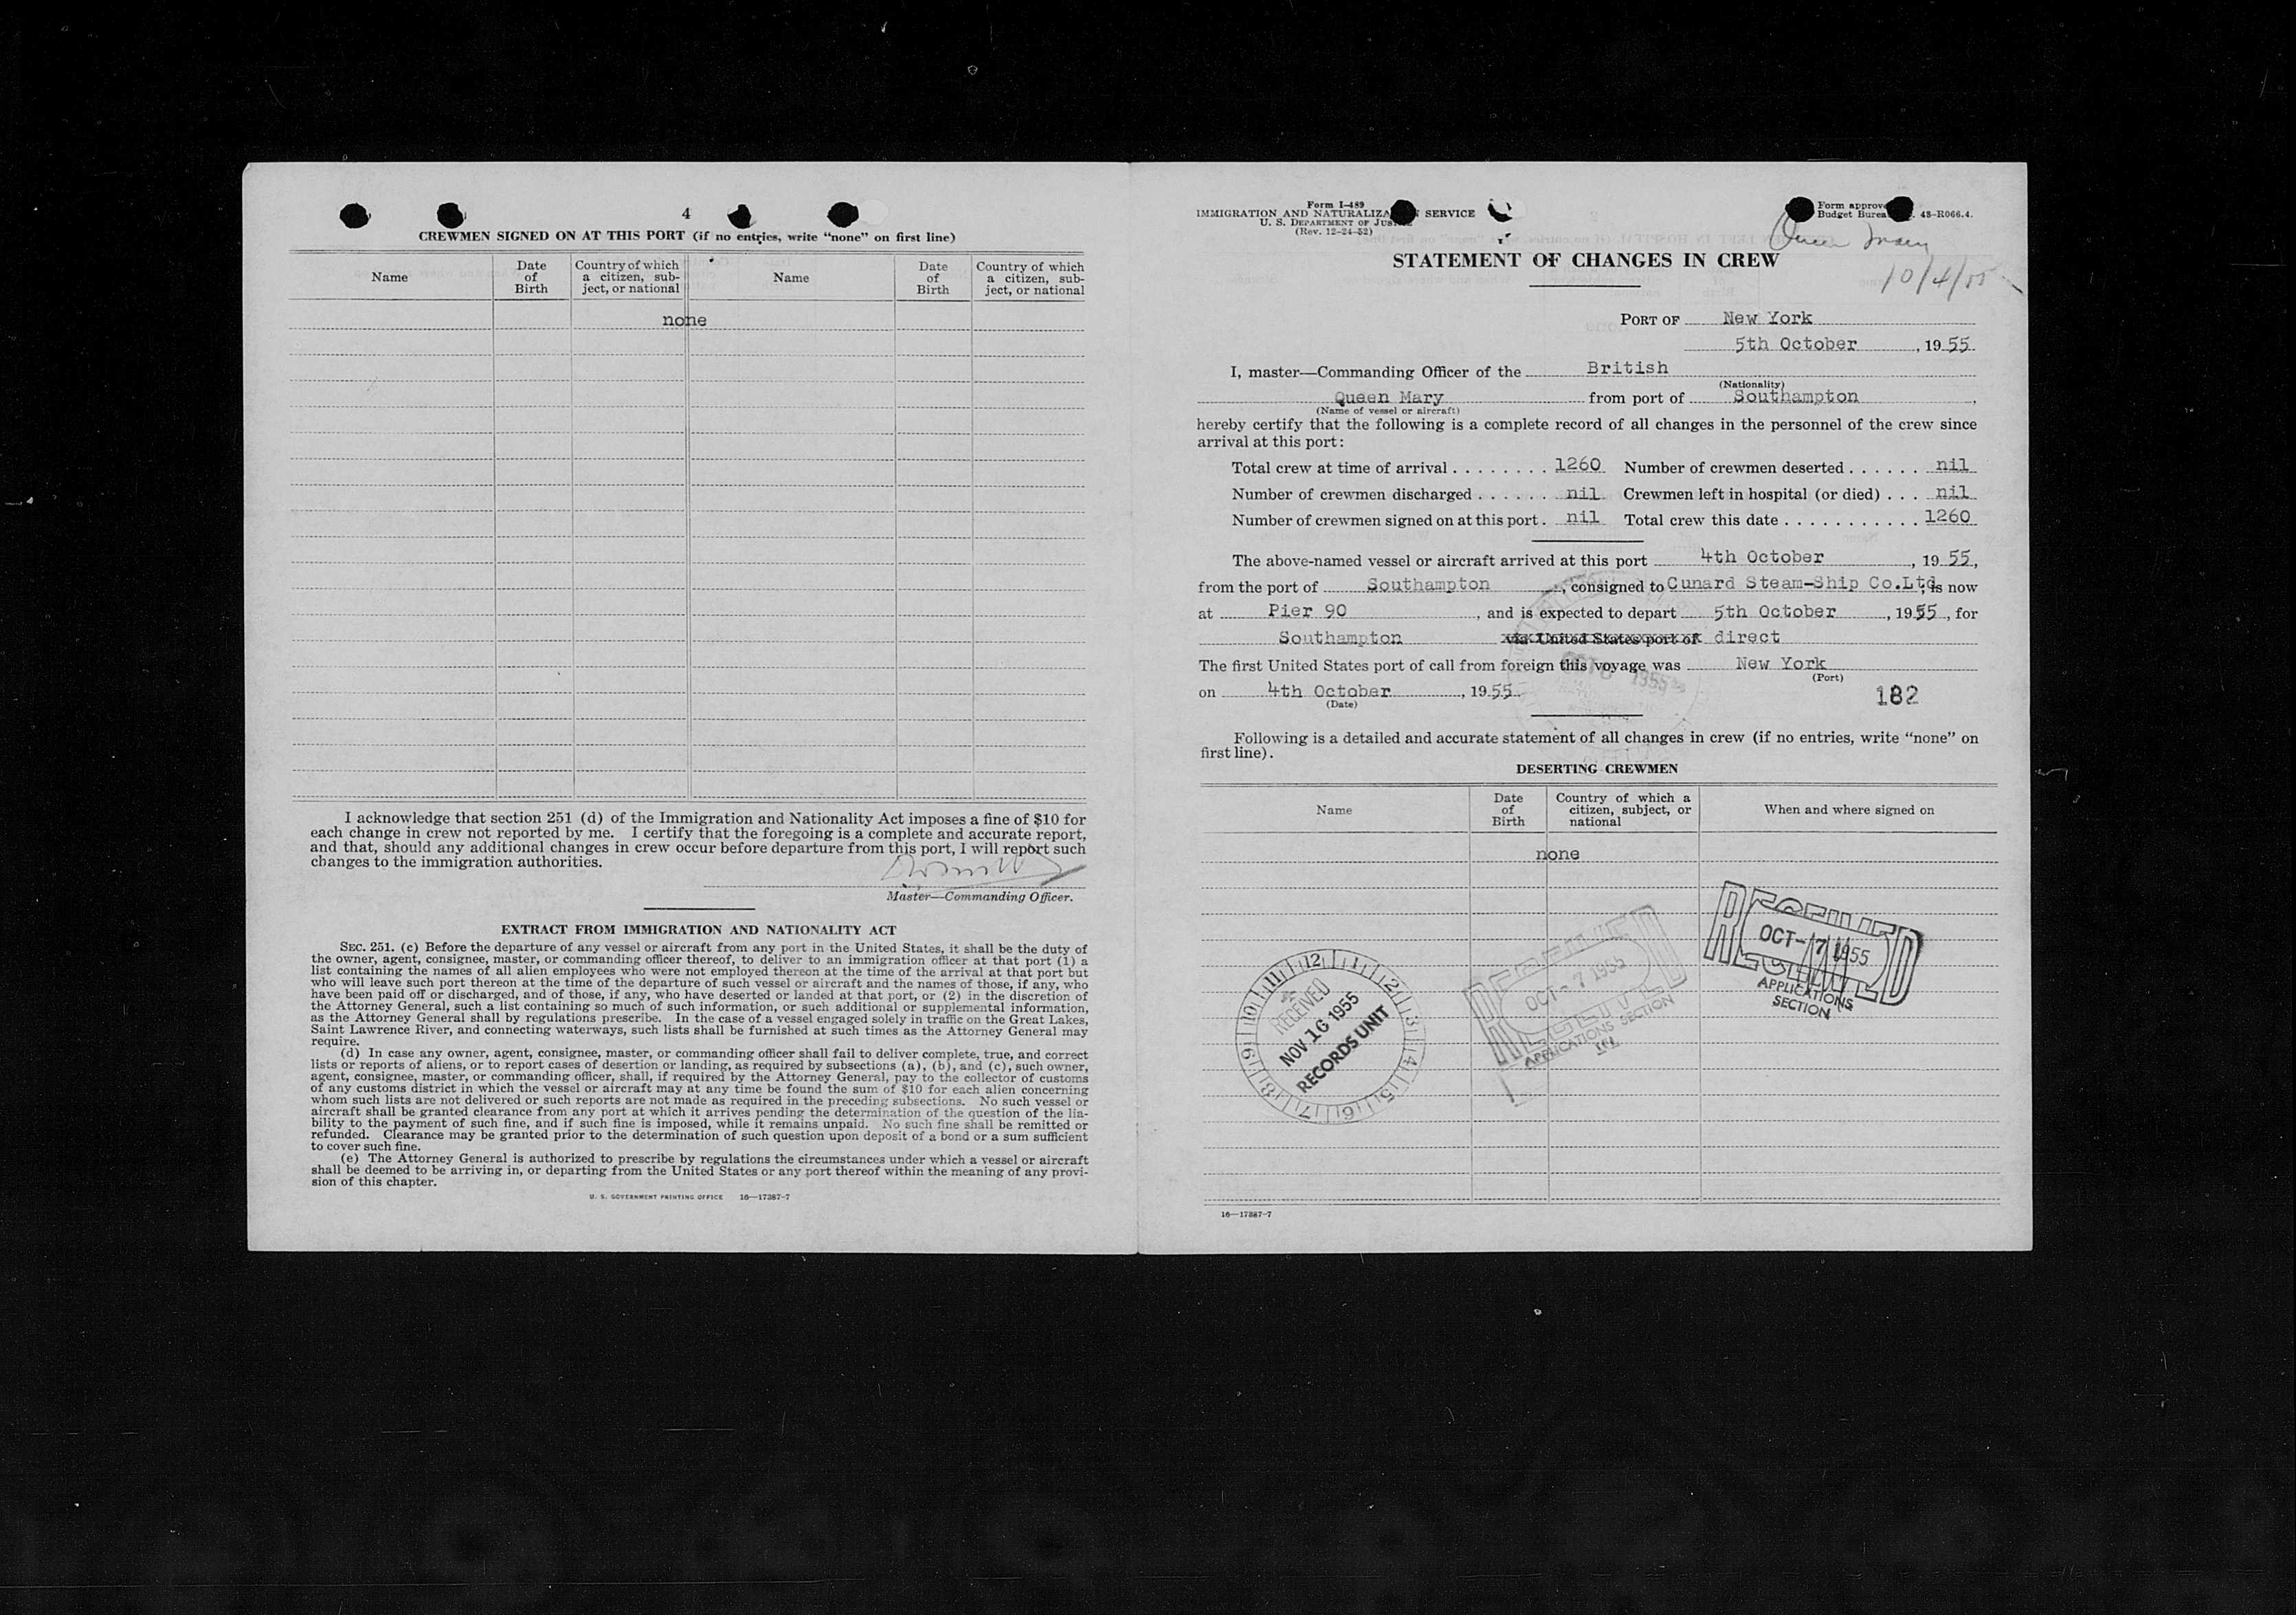 4
CREWMEN SIGNED ON AT THIS PORT (if no entries, write “none” on first line)
Name
Date of Birth
Country of which a citizen, subject, or national
Name
Date of Birth
Country of which a citizen, subject, or national
none
I acknowledge that section 251 (d) of the Immigration and Nationality Act imposes a fine of $10 for
each change in crew not reported by me. I certify that the foregoing is a complete and accurate report,
and that, should any additional changes in crew occur before departure from this port, I will report such
changes to the immigration authorities.
Master—Commanding Officer.
EXTRACT FROM IMMIGRATION AND NATIONALITY ACT
SEC. 251. (c) Before the departure of any vessel or aircraft from any port in the United States, it shall be the duty of
the owner, agent, consignee, master, or commanding officer thereof, to deliver to an immigration officer at that port (1) a
list containing the names of all alien employees who were not employed thereon at the time of the arrival at that port but
who will leave such port thereon at the time of the departure of such vessel or aircraft and the names of those, if any, who
have been paid off or discharged, and of those, if any, who have deserted or landed at that port, or (2) in the discretion of
the Attorney General, such a list containing so much of such information, or such additional or supplemental information,
as the Attorney General shall by regulations prescribe. In the case of a vessel engaged solely in traffic on the Great Lakes,
Saint Lawrence River, and connecting waterways, such lists shall be furnished at such times as the Attorney General may
require.
(d) In case any owner, agent, consignee, master, or commanding officer shall fail to deliver complete, true, and correct
lists or reports of aliens, or to report cases of desertion or landing, as required by subsections (a), (b), and (c), such owner,
agent, consignee, master, or commanding officer, shall, if required by the Attorney General, pay to the collector of customs
of any customs district in which the vessel or aircraft may at any time be found the sum of $10 for each alien concerning
whom such lists are not delivered or such reports are not made as required in the preceding subsections. No such vessel or
aircraft shall be granted clearance from any port at which it arrives pending the determination of the question of the lia-
bility to the payment of such fine, and if such fine is imposed, while it remains unpaid. No such fine shall be remitted or
refunded. Clearance may be granted prior to the determination of such question upon deposit of a bond or a sum sufficient
to cover such fine.
(e) The Attorney General is authorized to prescribe by regulations the circumstances under which a vessel or aircraft
shall be deemed to be arriving in, or departing from the United States or any port thereof within the meaning of any provi-
sion of this chapter.
U. S. GOVERNMENT PRINTING OFFICE 16—17387-7
Form I-489
IMMIGRATION AND NATURALIZA SERVICE
U. S. DEPARTMENT OF JUS
(Rev. 12-24-52)
Form approve
Budget Burea . 43-R066.4.
Queen Mary
10/4/55
STATEMENT OF CHANGES IN CREW
PORT OF New York
5th October, 19 55
I, master—Commanding Officer of the British
(Nationality)
Queen Mary from port of Southampton,
(Name of vessel or aircraft)
hereby certify that the following is a complete record of all changes in the personnel of the crew since
arrival at this port:
Total crew at time of arrival ........ 1260 Number of crewmen deserted ...... nil
Number of crewmen discharged ...... nil Crewmen left in hospital (or died) ... nil
Number of crewmen signed on at this port. nil Total crew this date ........... 1260
The above-named vessel or aircraft arrived at this port 4th October, 19 55,
from the port of Southampton, consigned to Cunard Steam-Ship Co.Ltd, is now
at Pier 90, and is expected to depart 5th October, 1955, for
Southampton via United States port of direct
The first United States port of call from foreign this voyage was New York
(Port)
on 4th October, 19 55
(Date)
182
OCT 1955
Following is a detailed and accurate statement of all changes in crew (if no entries, write “none” on
first line).
DESERTING CREWMEN
Name
Date of Birth
Country of which a citizen, subject, or national
When and where signed on
none
RECEIVED
OCT-7 1955
APPLICATIONS
SECTION
RECEIVED
OCT-7 1955
APPLICATIONS SECTION
12 1 2 3 4 5 6 7 8 9 10 11
RECEIVED
NOV 16 1955
RECORDS UNIT
16—17387-7